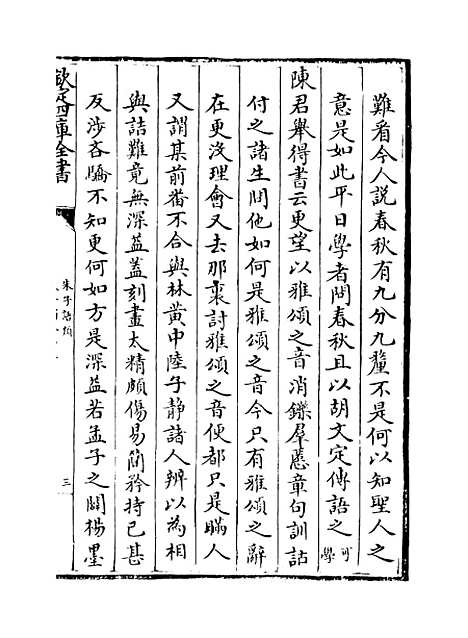 難看今人説春秋有九分九釐不是何以知聖人之
意是如此平日學者問春秋且以胡文定傳語之可學
陳君舉得書云更望以雅頌之音消鑠羣慝章句訓詁
付之諸生問他如何是雅頌之音今只有雅頌之辭
在更沒理會又去那裏討雅頌之音便都只是瞞人
又謂某前番不合與林黄中陸子静諸人辨以為相
與詰難竟無深益蓋刻畫太精頗傷易簡矜持已甚
反涉吝驕不知更何如方是深益若孟子之闢楊墨
欽定四庫全書
朱子語類
三